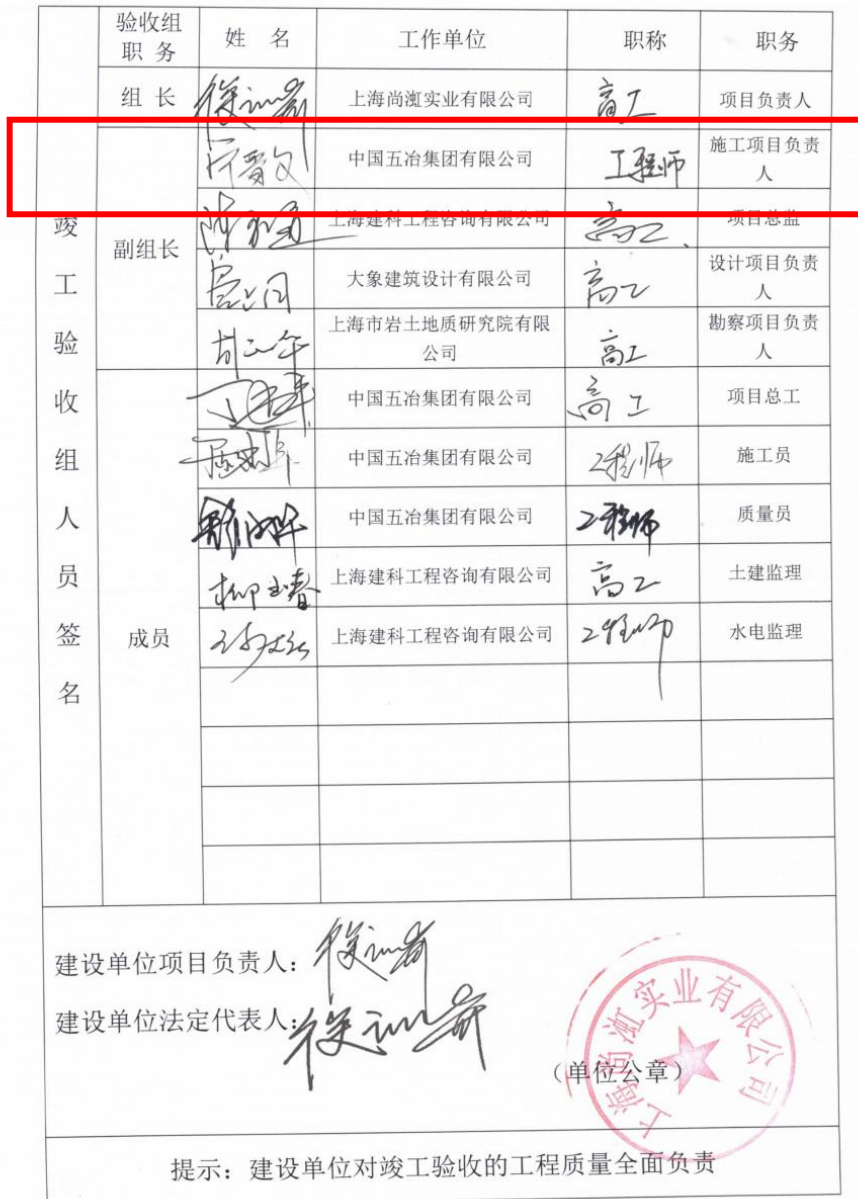 验收组
职 务
姓 名
工作单位
职称
职务
组 长
上海尚滪实业有限公司
高工
项目负责人
中国五冶集团有限公司
工程师
施工项目负责
人
上海建科工程咨询有限公司
高工
项目总监
副组长
大象建筑设计有限公司
高工
设计项目负责
人
上海市岩土地质研究院有限
公司
高工
勘察项目负责
人
中国五冶集团有限公司
高工
项目总工
中国五冶集团有限公司
工程师
施工员
中国五冶集团有限公司
工程师
质量员
柳玉春
上海建科工程咨询有限公司
高工
土建监理
成员
上海建科工程咨询有限公司
工程师
水电监理
竣工验收组人员签名
建设单位项目负责人:
建设单位法定代表人:
(单位公章)
提示:建设单位对竣工验收的工程质量全面负责